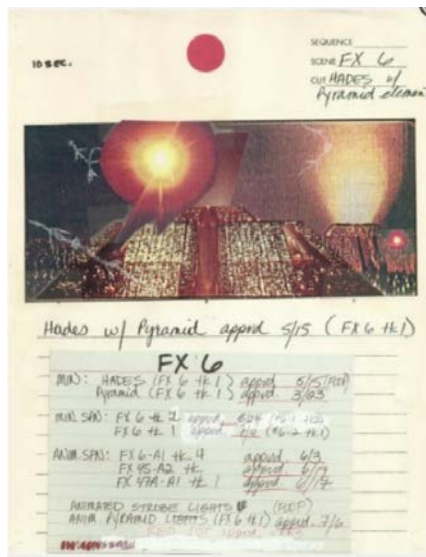 SEQUENCE
10 SEC.
SCENE FX 6
CUT HADES w/
Pyramid element
Hades w/ Pyramid apprvd 5/15 (FX 6 tk 1)
FX 6
MIN: HADES (FX 6 tk 1) apprvd. 5/15 (POP)
Pyramid (FX 6 tk 1) apprvd. 3/23
MIN. SPN: FX 6 tk 2 apprvd.
FX 6 tk 1 apprvd.
ANIM. SPN: FX 6-A1 tk 4 apprvd 6/3
FX 45-A2 tk apprvd
FX 47A-A1 tk 1 apprvd.
ANIMATED STROBE LIGHTS
ANIM. PYRAMID LIGHTS (FX 6 tk 1) apprvd. 7/6